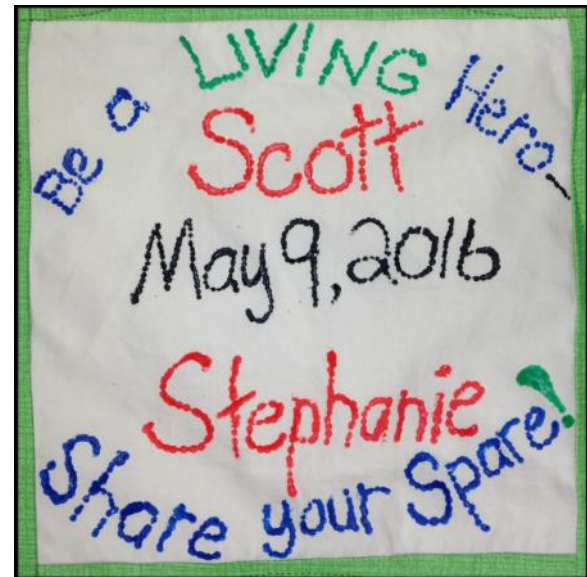 Be a LIVING Hero-
Scott
May 9, 2016
Stephanie
Share your Spare!